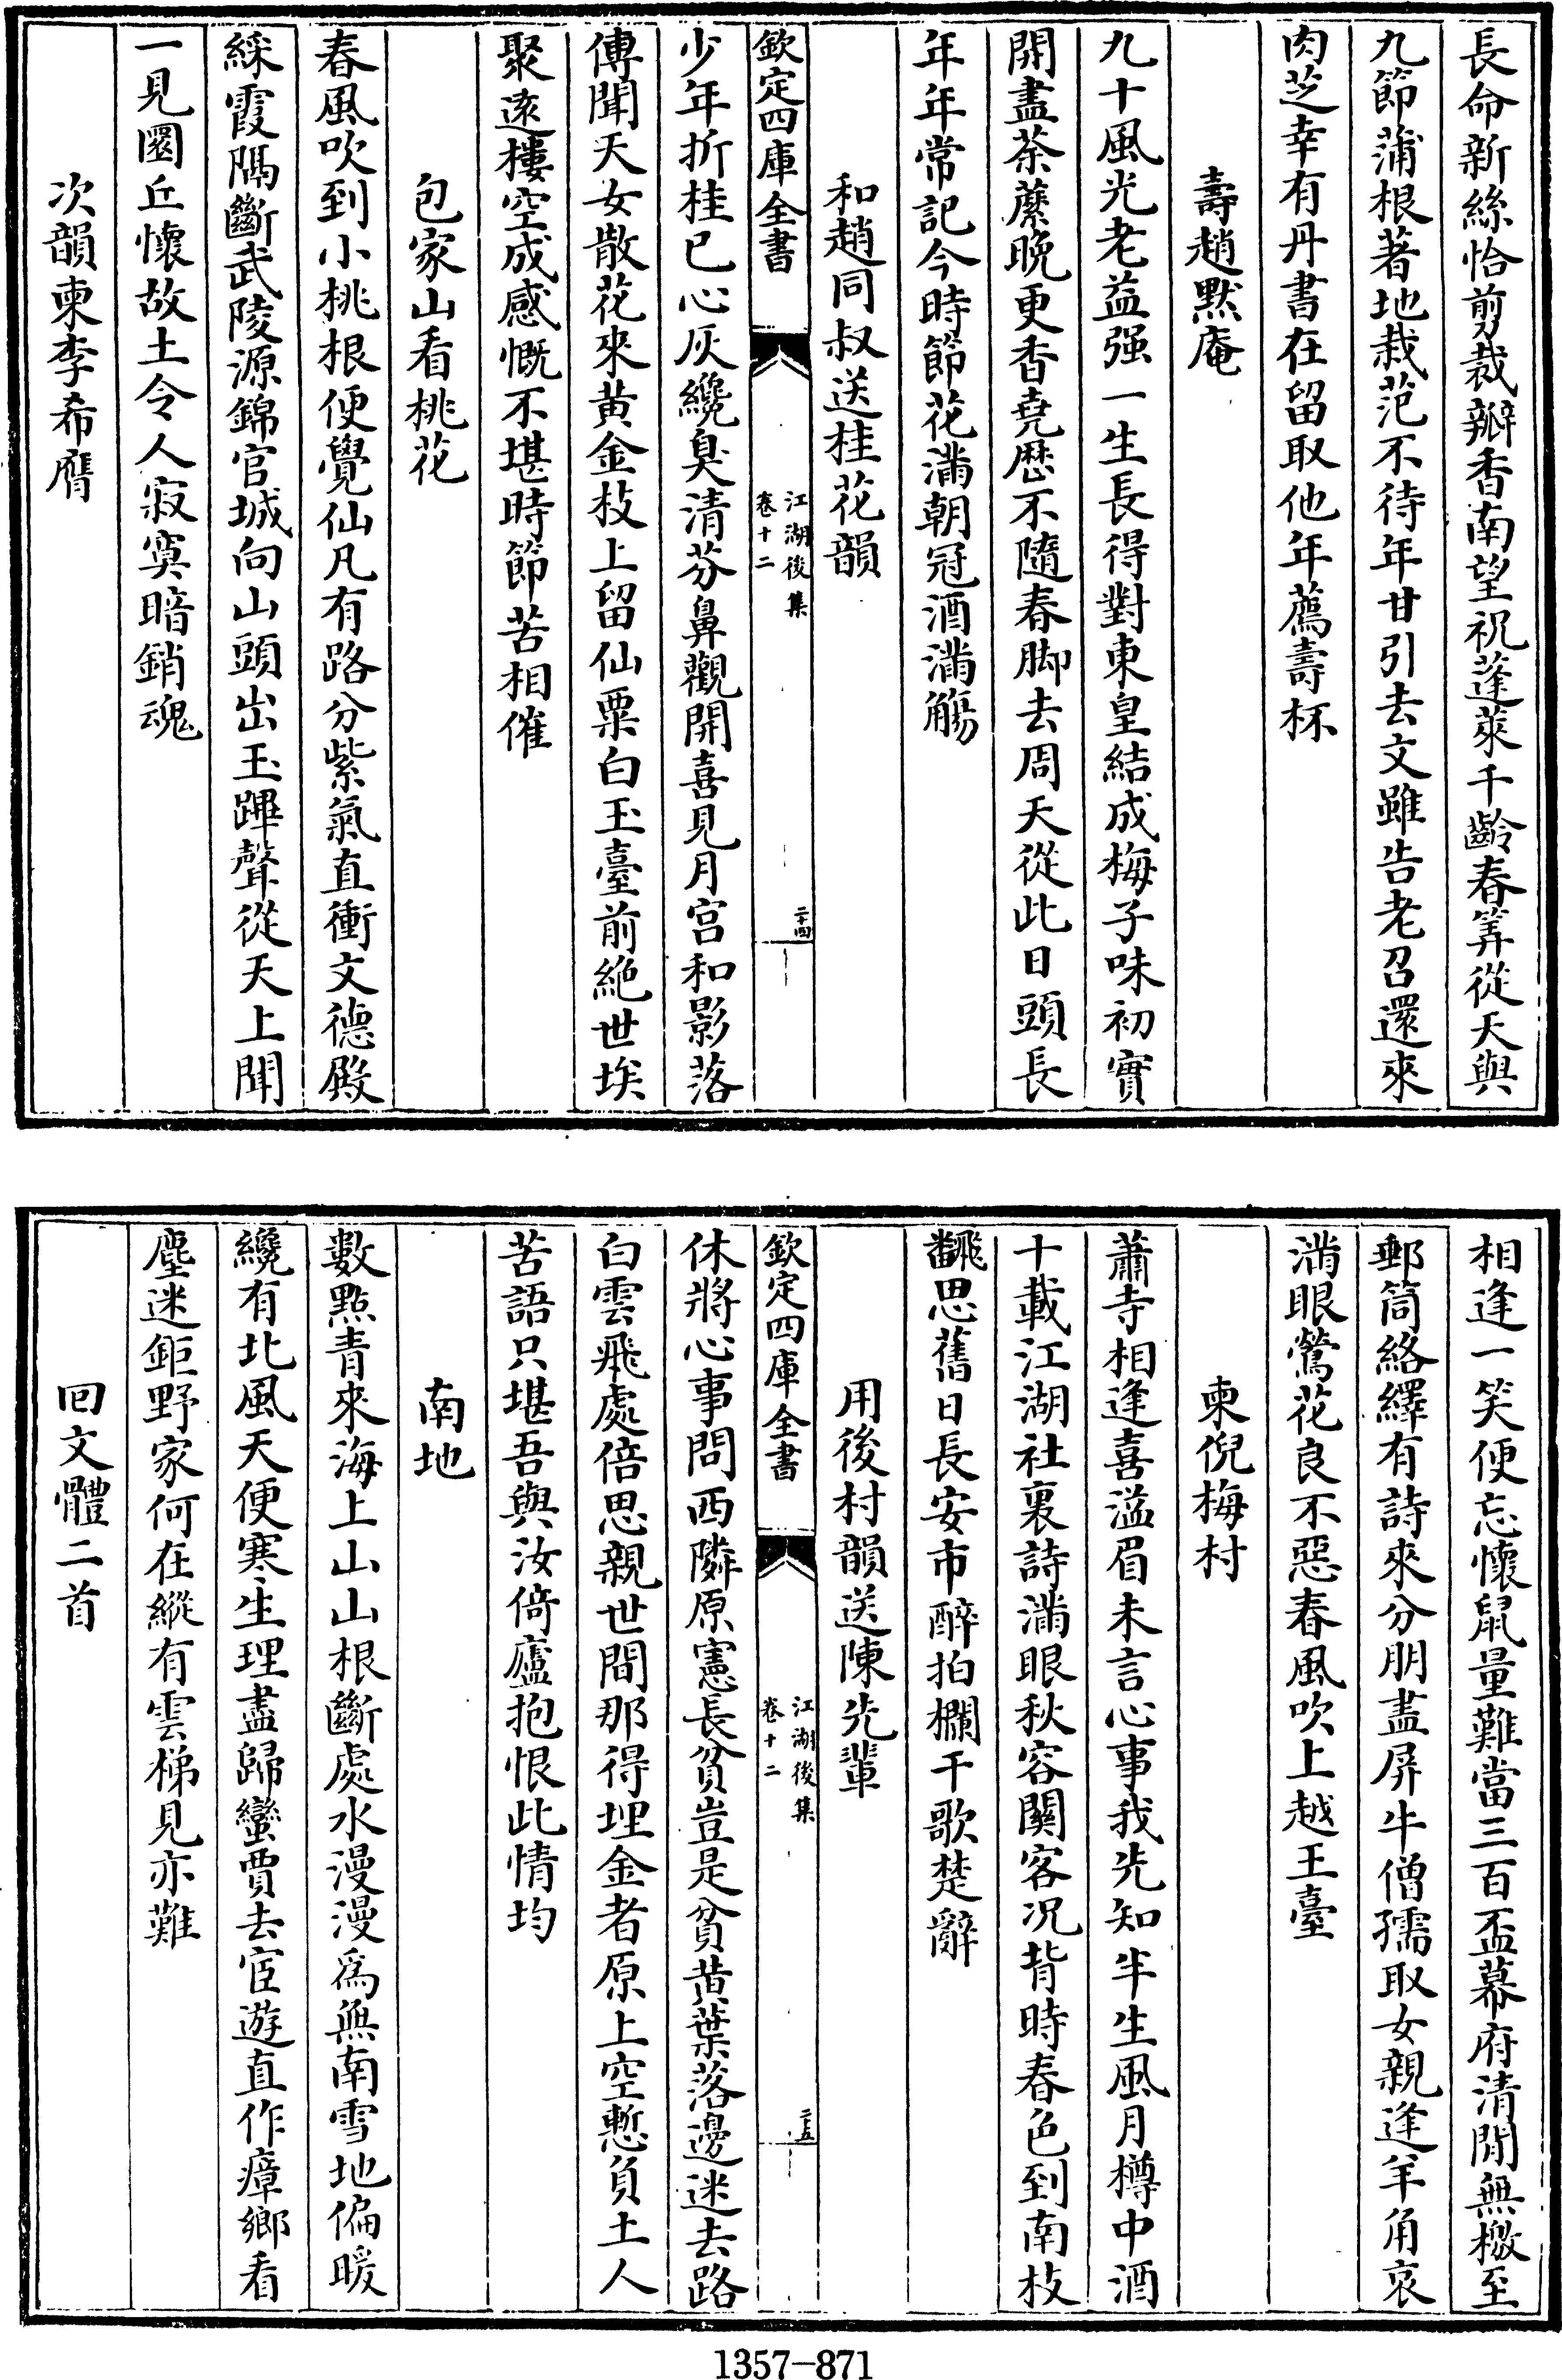 長命新絲恰剪裁瓣香南望祝蓬萊千齡春筭從天與
九節蒲根著地栽范不待年甘引去文雖告老召還來
肉芝幸有丹書在留取他年薦壽杯
壽趙默庵
九十風光老益强一生長得對東皇結成梅子味初實
開盡荼蘼晚更香堯厯不隨春脚去周天從此日頭長
年年常記今時節花滿朝冠酒滿觴
和趙同叔送桂花韻
欽定四庫全書
江湖後集
卷十二
二十四
少年折桂已心灰纔臭清芬鼻觀開喜見月宫和影落
傳聞天女散花來黄金枝上留仙粟白玉臺前絶世埃
聚逺樓空成感慨不堪時節苦相催
包家山看桃花
春風吹到小桃根便覺仙凡有路分紫氣直衝文德殿
綵霞隅斷武陵源錦官城向山頭出玉蹕聲從天上聞
一見圜丘懷故土令人寂寞暗銷魂
次韻柬李希膺
相逢一笑便忘懷鼠量難當三百盃幕府清閒無檄至
郵筒絡繹有詩來分朋盡屏牛僧孺取女親逢羊角哀
滿眼鶯花良不惡春風吹上越王臺
柬倪梅村
蕭寺相逢喜溢眉未言心事我先知半生風月樽中酒
十載江湖社裏詩滿眼秋容關客况背時春色到南枝
飜思舊日長安市醉拍欄干歌楚辭
用後村韻送陳先輩
欽定四庫全書
江湖後集
卷十二
二十五
休將心事問西隣原憲長貧豈是貧黄葉落邊迷去路
白雲飛處倍思親世間那得埋金者原上空慙負土人
苦語只堪吾與汝倚廬抱恨此情均
南地
數點青來海上山山根斷處水漫漫為無南雪地偏暖
纔有北風天便寒生理盡歸蠻賈去宦遊直作瘴鄉看
塵迷鉅野家何在縱有雲梯見亦難
回文體二首
1357-871